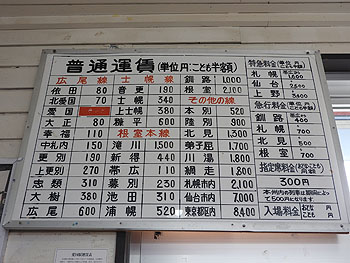 普通運賃(単位円:こども半額)
広尾線 士幌線 釧路 1,100
依田 80 音更 190 根室 2,100
北愛国 70 士幌 340 その他の線
愛国 上士幌 380 本別 520
大正 80 糠平 600 陸別 900
幸福 110 根室本線 北見 1,300
中札内 150 滝川 1,500 弟子屈 1,700
更別 190 新得 440 川湯 1,800
上更別 270 芽室 110 網走 1,800
忠類 310 幕別 230 札幌市内 2,100
大樹 380 池田 310 仙台市内 7,000
広尾 600 浦幌 520 東京都区内 8,400
特急料金
札幌
仙台
上野
急行料金
札幌 700
北見 500
根室 700
指定席料金
300円
本州内の列車は
500円になります
入場料金